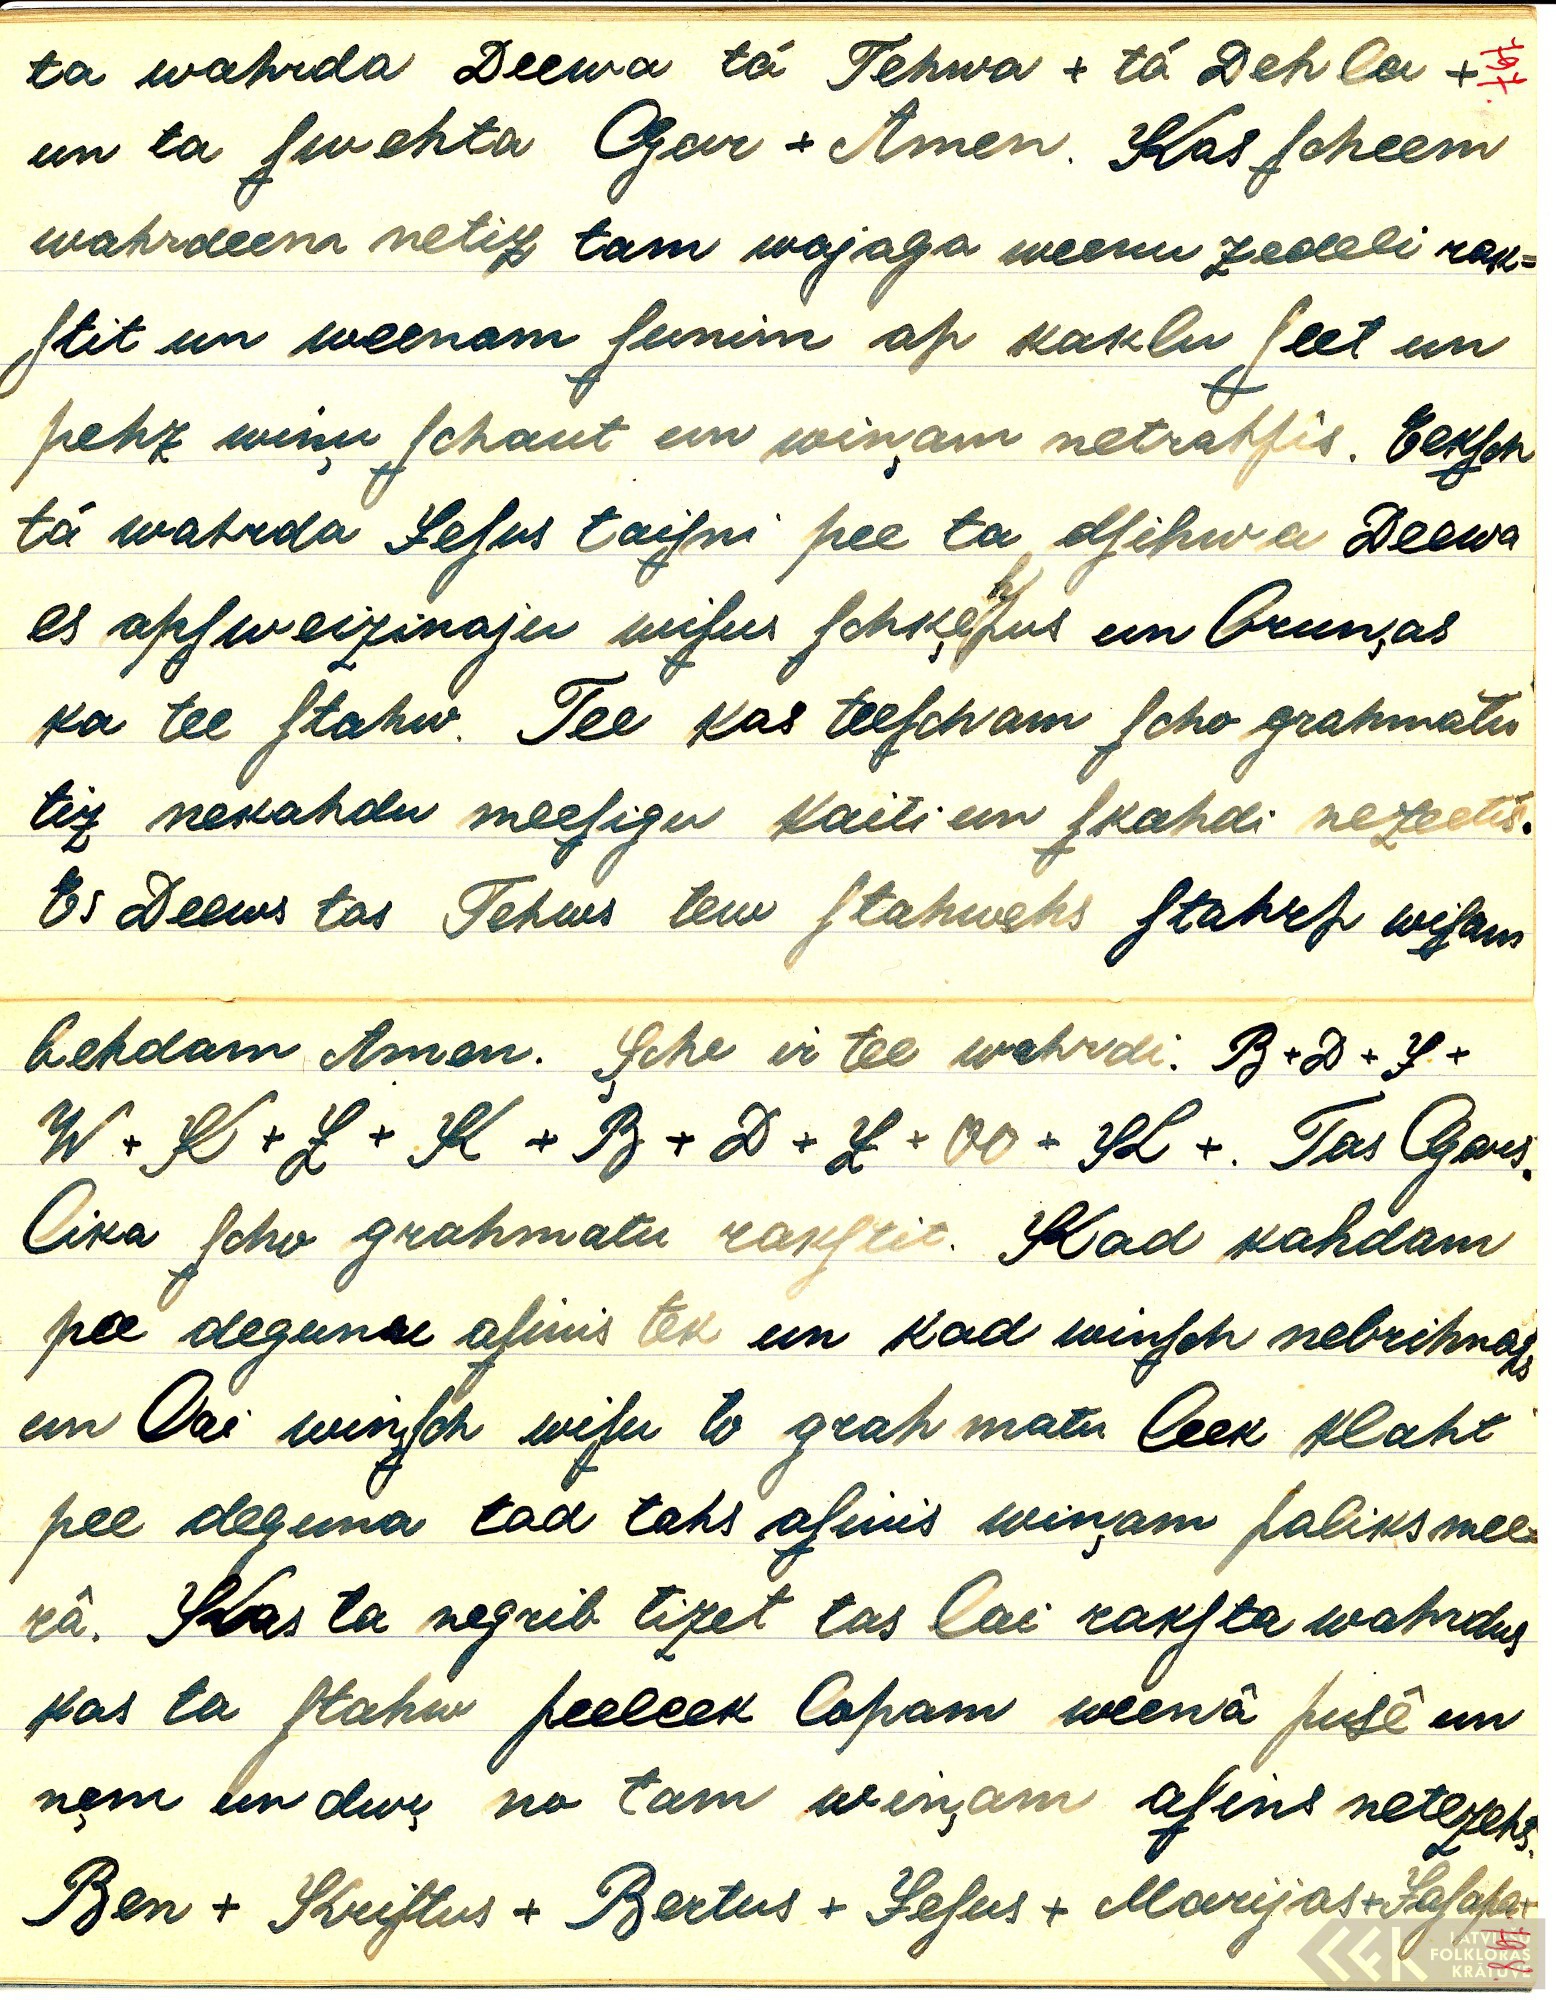 ta wahrda Deewa tá Tehwa + tá Dehla + 797.
un ta ſwehta Gar + Amen. Kas ſcheem
wahrdeem netiz tam wajaga weenu zedeli rak=
ſtit un weenam ſunim ap kaklu ſeet un
pehz wiņu ſchaut un wiņam netrahpis. Eekſch
tá wahrda Jeſus taiſni pee ta dſihwa Deewa
es apſweizinaju wiſus ſchķehpus un bruņas
ka tee ſtahw. Tee kas teeſcham ſcho grahmatu
tiz nekahdu meeſigu kaiti un ſkahdi nezeetis.
Es Deews tas Tehws tew ſtahwehs ſtahrp wiſam
behdam Amen. Sche ir tee wahrdi. B + D + J +
W + K + Z + K + B + D + Z + OO + SL +. Tas Gars.
lika ſcho grahmatu rakſtit. Kad kahdam
pee deguna aſinis tek un kad winſch nebrihnajs
un lai wiņſch wiſu to grahmatu leek klaht
pee deguna tad tahs aſinis wiņam paliks mee=
râ. Kas ta negrib tizet tas lai rakſta wahrdus
kas ta ſtahw peeleek lapam weenâ pusê un
ņem un dur no tam wiņam aſins netezehs.
Ben + Kriſtus + Bertus + Jeſus + Marijas + Jaſapa +
LATVIEŠU
FOLKLORAS
KRĀTUVE